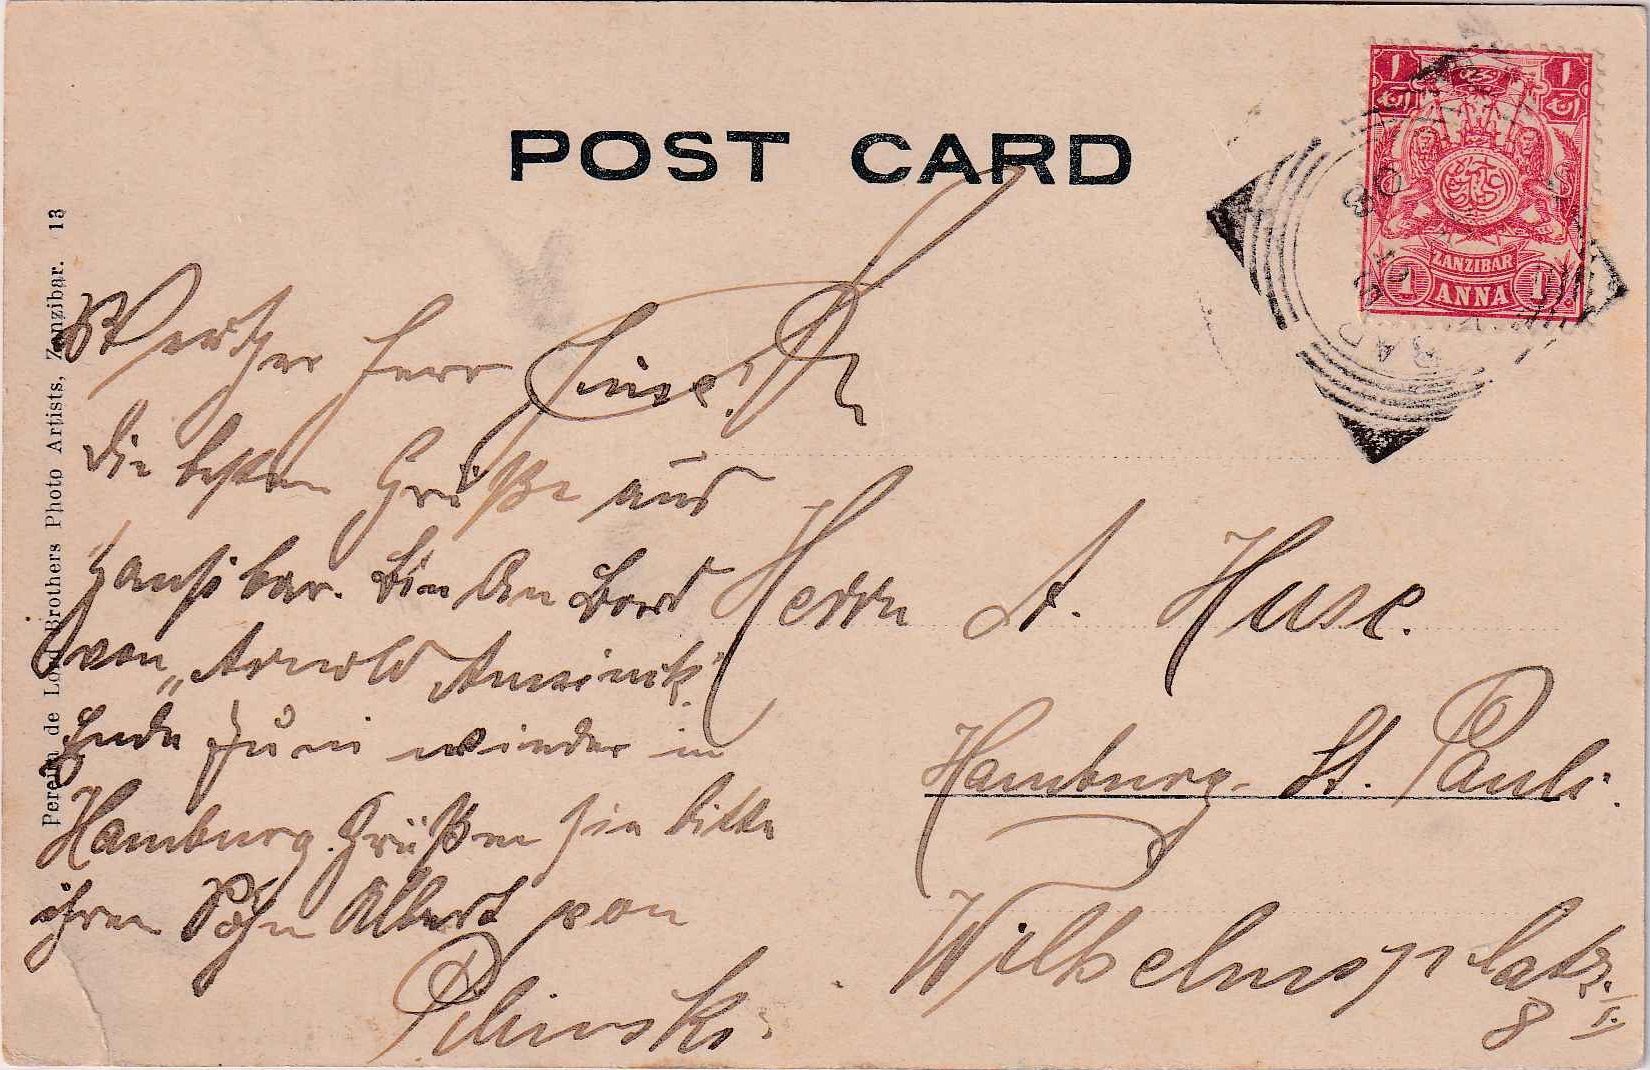 POST CARD
Pereira de Lord Brothers Photo Artists, Zanzibar. 13
ZANZIBAR
1 ANNA 1
08
Werther Herr Huse!
Die besten Grüße aus
Zansibar. Bin an Bord
von „Arnold Amsinck“
Ende Juni wieder in
Hamburg. Grüßen sie bitte
ihren Sohn Albert von
Herrn A. Huse.
Hamburg- St. Pauli.
Wilhelmsplatz.
8 I.